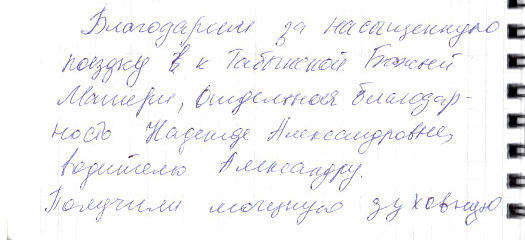 Благодарим за насыщенную
поездку в к Табынской Божией
Матери, Отдельная благодар-
ность Надежде Александровне,
водителю Александру.
Получили мощную духовную